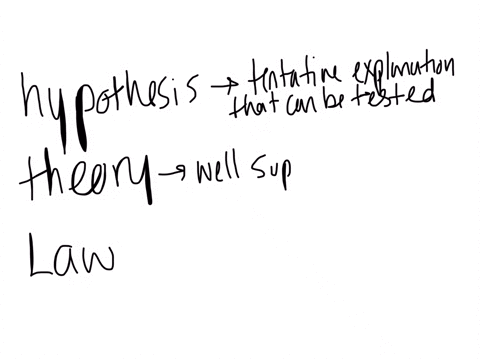 hypothesis → tentative explanation
that can be tested
theory → well sup
Law